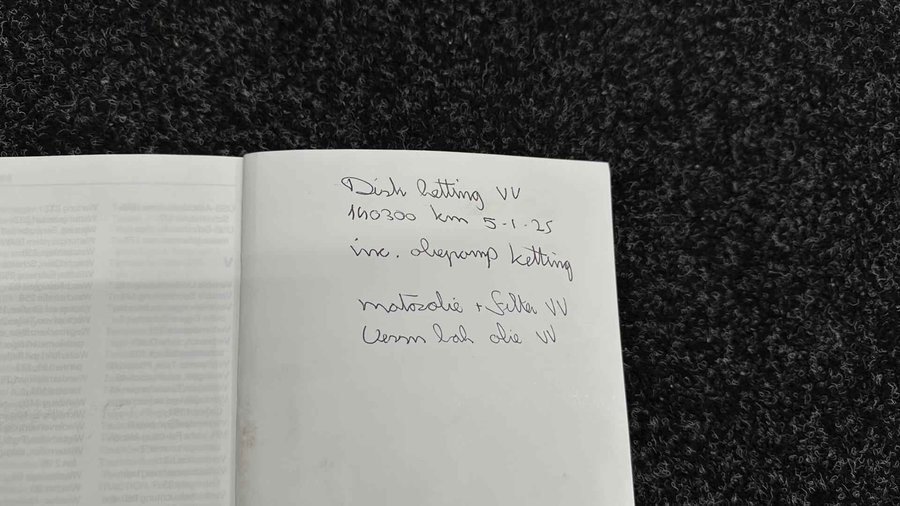 Distr ketting VV
140300 km 5-1-25
inc. oliepomp ketting
motorolie + Filter VV
Versn bak olie VV